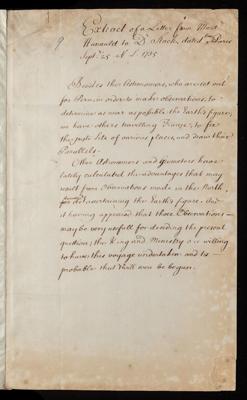 Extract of a Letter from Monsr
to Dr Stack, dated Paris
9
Septr 25 N.S. 1735
Besides the Astronomers, who are set out
for Peru in order to make observations, to
determine as near as possible the Earth's figure;
we have others travelling France, to fix
the just Site of various places, and draw their
Parallels.
Other Astronomers and Geometers have
lately calculated the advantages that may
result from Observations made in the North,
for ascertaining the Earth's figure. And
it having appeared that those Observations
may be very usefull for deciding the present
question; the King and Ministry are willing
to have this voyage undertaken and is
probable that it will soon be begun.